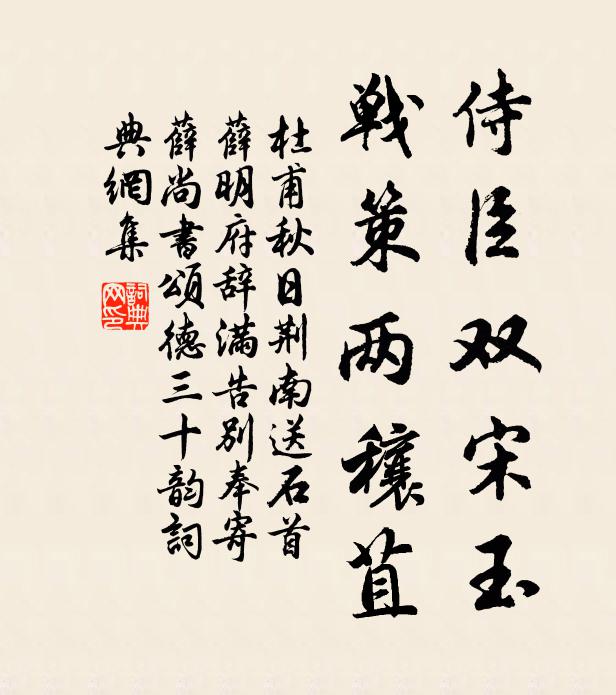 侍臣双宋玉
戦策两穰苴
杜甫秋日荆南送石首
薛明府辞满告别奉寄
薛尚書頌德三十韵詞
典網集
詞典
网印